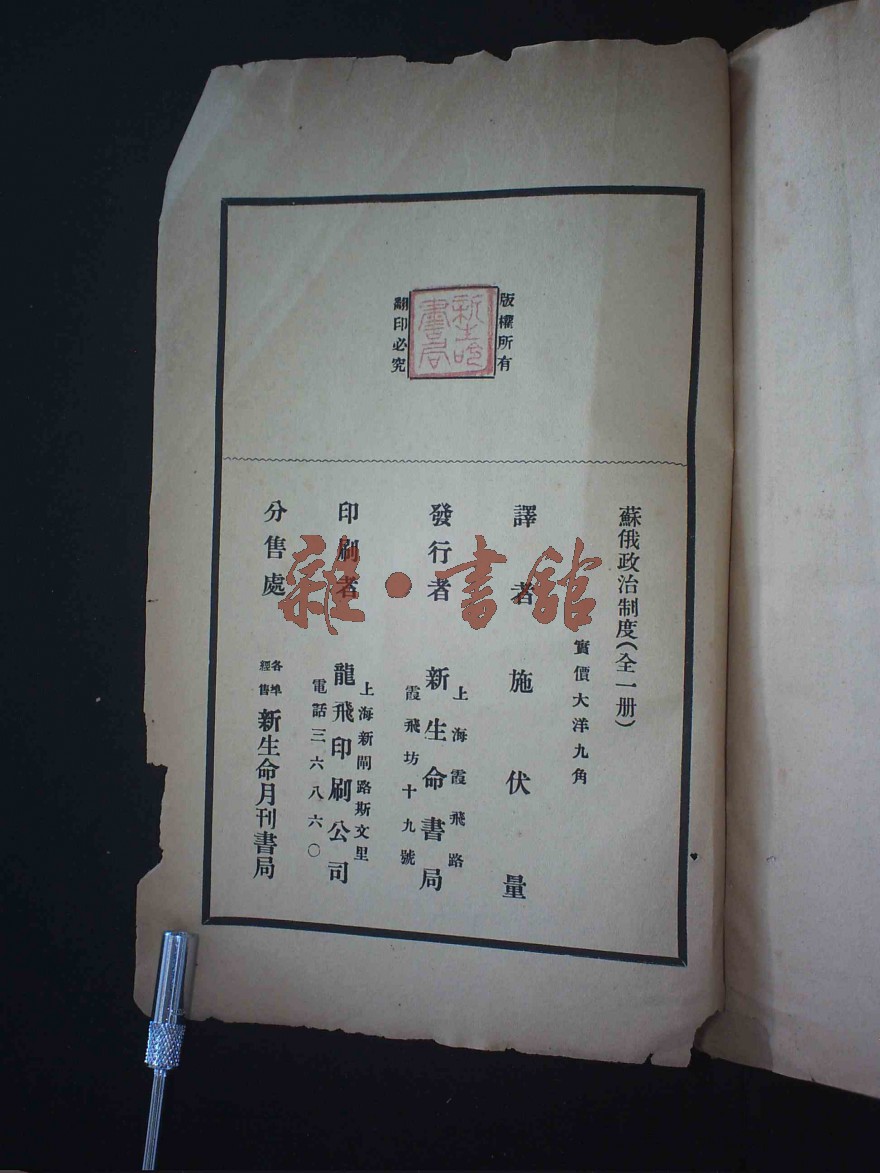 版權所有
新生命書局
翻印必究
蘇俄政治制度(全一册)
實價大洋九角
譯者 施伏量
上海霞飛路
發行者 新生命書局
霞飛坊十九號
上海新閘路斯文里
印刷者 龍飛印刷公司
電話三六八六〇
分售處 各埠經售 新生命月刊書局
雜·書館